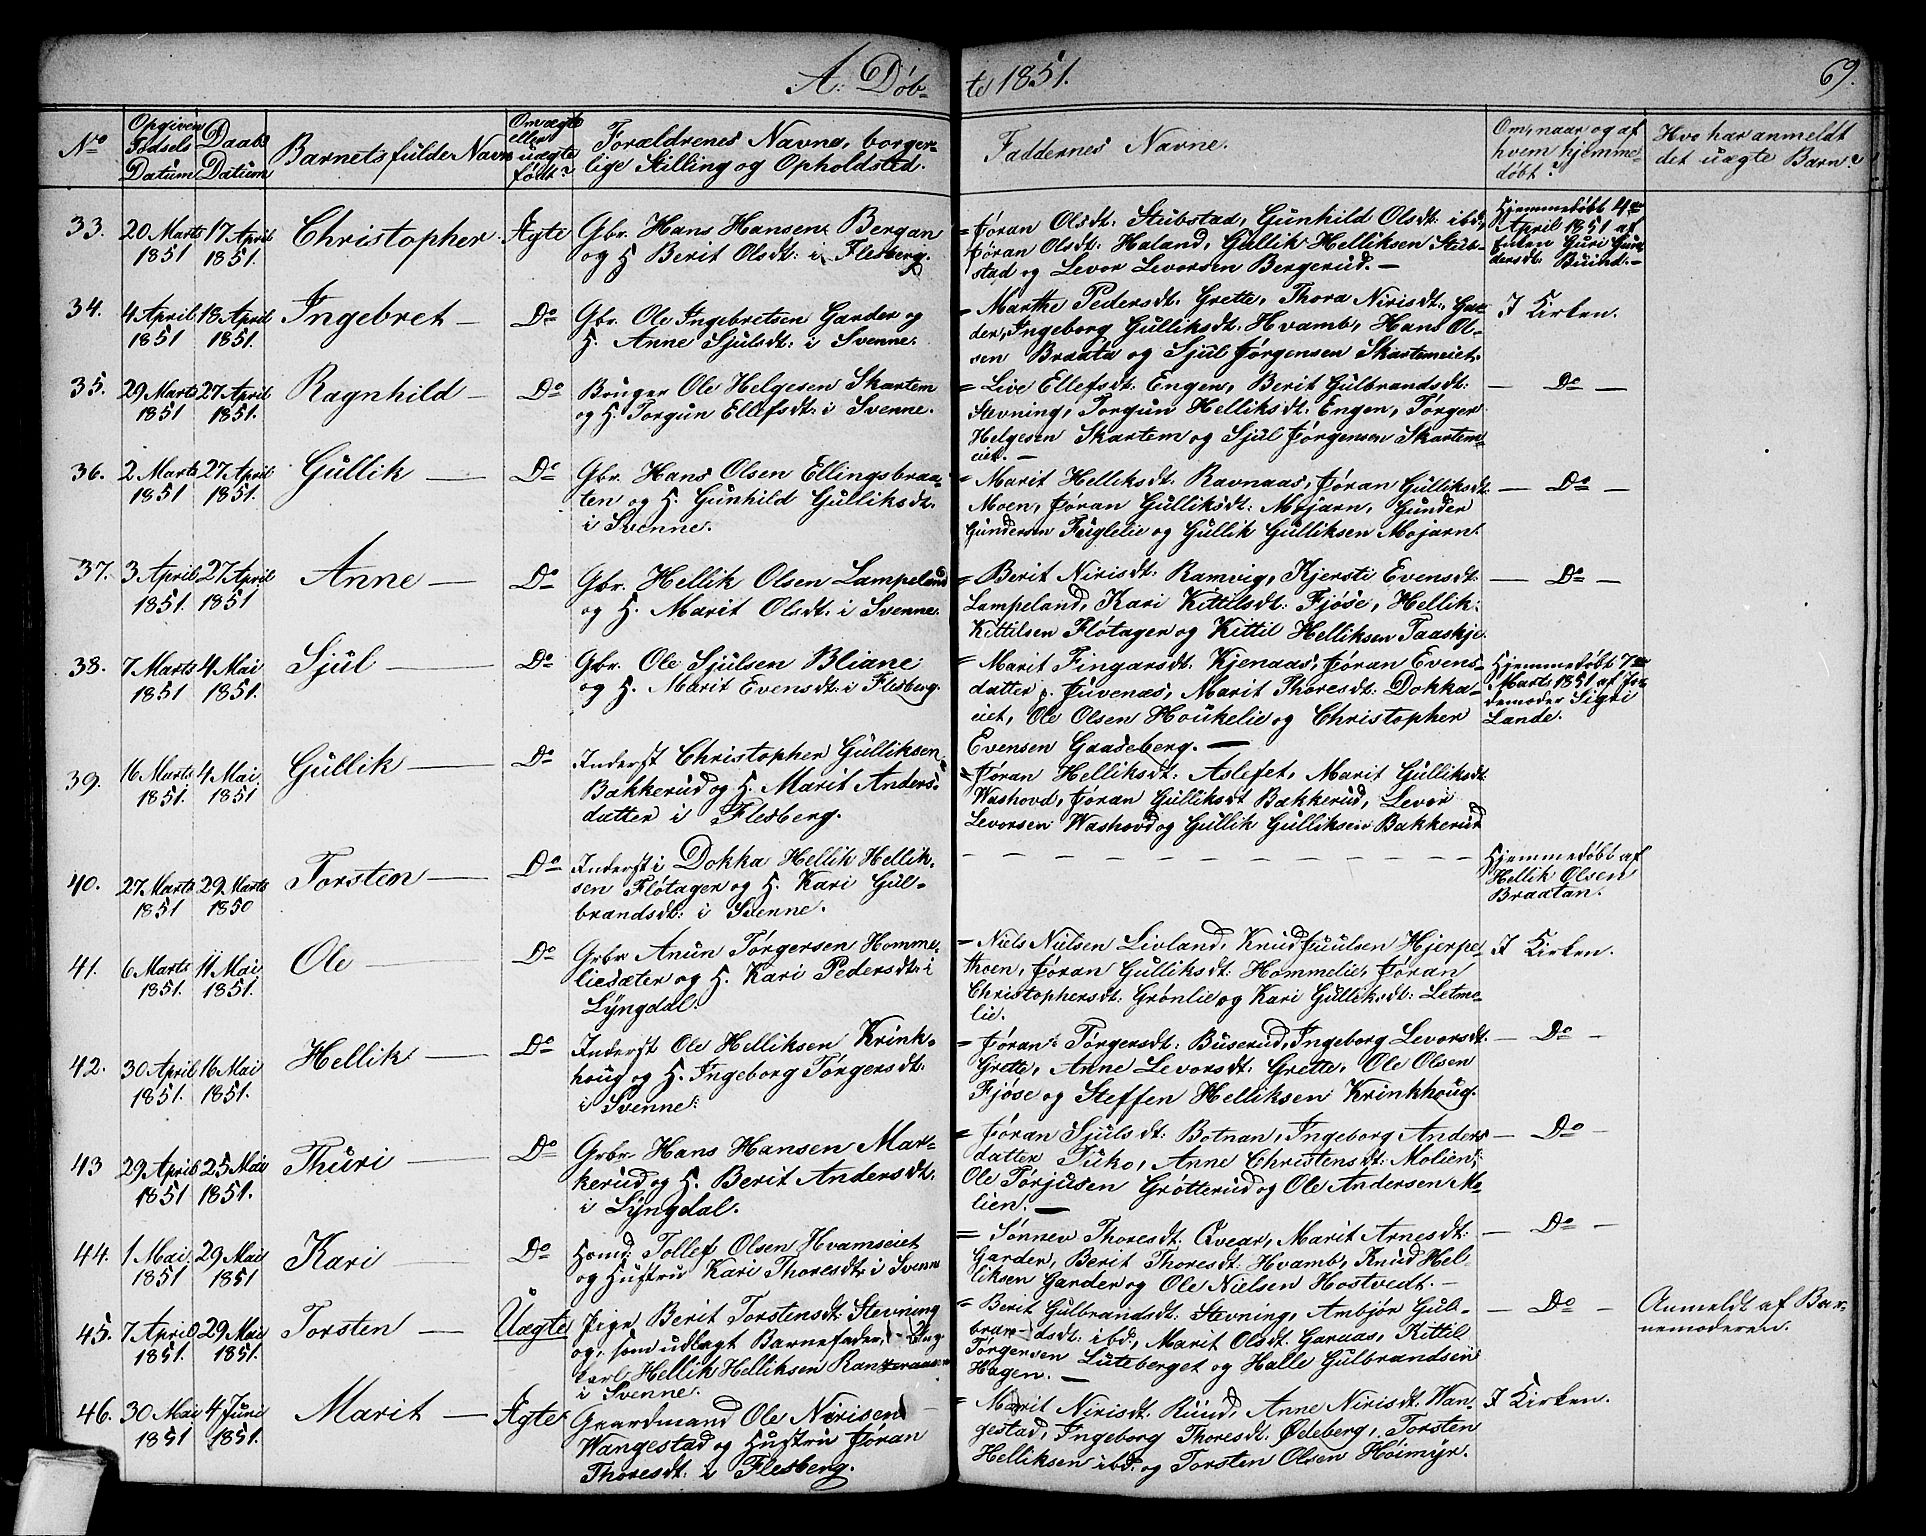 A. Døb-
te 1851.
69.
No
Opgiven Fødsels Datum
Daabs Datum
Barnets fulde Navn
Om ægte eller uægte født?
Forældrenes Navne, borger-
lige Stilling og Opholdsted.
Faddernes Navne.
Om, naar og af hvem hjemme-
døbt?
Hvo har anmeldt
det uægte Barn?
33. 20 Marts 1851 17 April 1851. Christopher Ægte
Gbr. Hans Hansen Bergan
og H. Berit Olsdt: i Flesberg.
= Jøran Olsdt. Stubstad, Gunhild Olsdt: ibd,
Jøran Olsdt: Haland, Gullik Helliksen Stub-
stad og Levor Levorsen Bergerud. —
Hjemmedøbt 4de
April 1851 af
Enken Guri Gun-
dersdt. Buind. —
34. 4 April 1851 18 April 1851. Ingebret — Do
Gbr. Ole Ingebretsen Garder og
H. Anne Sjulsdt: i Svenne.
= Marthe Pedersdt. Grette, Thora Nirisdt. Gar-
der, Ingeborg Gulliksdt. Hvamb, Hans Ol-
sen Braata og Sjul Jørgensen Skartemeiet.
I Kirken.
35. 29 Marts 1851 27 April 1851. Ragnhild — Do
Bruger Ole Helgesen Skartem
og H. Torgun Ellefsdt: i Svenne.
= Live Ellefsdt: Engen, Berit Gulbrandsdt:
Stevning, Torgun Helliksdt: Engen, Torger
Helgesen Skartem og Sjul Jørgensen Skartem-
eiet. —
— Do —
36. 2 Marts 1851 27 April 1851. Gullik — Do
Gbr. Hans Olsen Ellingsbraa-
ten og H. Gunhild Gulliksdt.
i Svenne.
= Marit Helliksdt: Ravnaas, Jøran Gulliksdt:
Moen, Jøran Gulliksdt: Mojarn, Gunder
Gundersen Fuglelie og Gullik Gulliksen Mojarn.
— Do —
37. 3 April 1851. 27 April 1851 Anne — Do
Gbr. Hellik Olsen Lampeland
og H. Marit Olsdt. i Svenne.
= Berit Nirisdt: Ramvig, Kjersti Evensdt:
Lampeland, Kari Kittilsdt: Fjøse, Hellik
Kittilsen Fløtager og Kittil Helliksen Taaskje.
— Do —
38. 7 Marts 1851 4 Mai 1851. Sjul — Do
Gbr. Ole Sjulsen Bliane
og H. Marit Evensdt: i Flesberg.
= Marit Fingarsdt. Kjenaas, Jøran Evens-
datter p. Juvenæs, Marit Thoresdt: Dokka-
eiet, Ole Olsen Houkelie og Christopher
Evensen Gaaseberg. —
Hjemmedøbt 7de
Marts 1851 af Jor-
demoder Sigri
Lande.
39. 16 Marts 1851. 4 Mai 1851 Gullik — Do
Inderst Christopher Gulliksen
Bakkerud og H. Marit Anders-
datter i Flesberg.
= Jøran Helliksdt: Aslefet, Marit Gulliksdt
Washovd, Jøran Gulliksdt Bakkerud, Levor
Levorsen Washovd og Gullik Gulliksen Bakkerud
40. 27 Marts 1851 29 Marts 1850 Torsten — Do
Inderst i Dokka Hellik Hellik-
sen Fløtager og H. Kari Gul-
brandsdt: i Svenne.
Hjemmedøbt af
Hellik Olsen
Braatan.
41. 6 Marts 1851. 11 Mai 1851. Ole — Do
Grbr. Anun Torgersen Homme-
liesæter og H. Kari Pedersdt: i
Lyngdal.
= Niels Nielsen Livland, Knud Juulsen Hjerpe-
thoen, Jøran Gulliksdt: Hommelie, Jøran
Christophersdt: Grønlie og Kari Gulliksdt: Letme-
lie.
I Kirken.
42. 30 April 1851. 16 Mai 1851. Hellik — Do
Inderst Ole Helliksen Krink-
houg og H. Ingeborg Torgersdt.
i Svenne.
= Jøran Torgersdt: Buserud, Ingeborg Levorsdt.
Grette, Anne Levorsdt. Grette, Ole Olsen
Fjøse og Steffen Helliksen Krinkhoug.
— Do —
43 29 April 1851 25 Mai 1851. Thuri — Do
Grbr. Hans Hansen Mar-
kerud og H. Berit Andersdt.
i Lyngdal.
= Jøran Sjulsdt: Botnan, Ingeborg Anders
datter Juko, Anne Christensdt: Molien,
Ole Torjusen Grøtterud og Ole Andersen Mo-
lien. —
— Do —
44. 1 Mai 1851 29 Mai 1851 Kari Do
Hsmd: Tollef Olsen Hvamseiet
og Hustru Kari Thoresdt: i Svenne
= Sønnev Thoresdt: Qvear, Marit Arnesdt:
Garder, Berit Thoresdt: Hvamb, Knud Hel-
liksen Garder og Ole Nielsen Hostvedt. —
— Do —
45. 7 April 1851. 29 Mai 1851. Torsten — Uægte
Pige Berit Torstensdt. Stevning
og, som udlagt Barnefader, Ung-
karl Hellik Helliksen
i Svenne.
= Berit Gulbrandsdt: Stevning, Ambjør Gul-
brandsdt: ibd, Marit Olsdt: Garaas, Kittil
Torgersen Luteberget og Halle Gulbrandsen
Hagen. —
— Do —
Anmeldt af Bar-
nemoderen.
46. 30 Mai 1851 4 Juni 1851. Marit — Ægte
Gaardmand Ole Nirisen
Wangestad og Hustru Jøran
Thoresdt. i Flesberg.
= Marit Nirisdt. Ruud, Anne Nirisdt. Wan-
gestad, Ingeborg Thoresdt: Ødeberg, Torsten
Helliksen ibd. og Torsten Olsen Høimyr.
I Kirken.